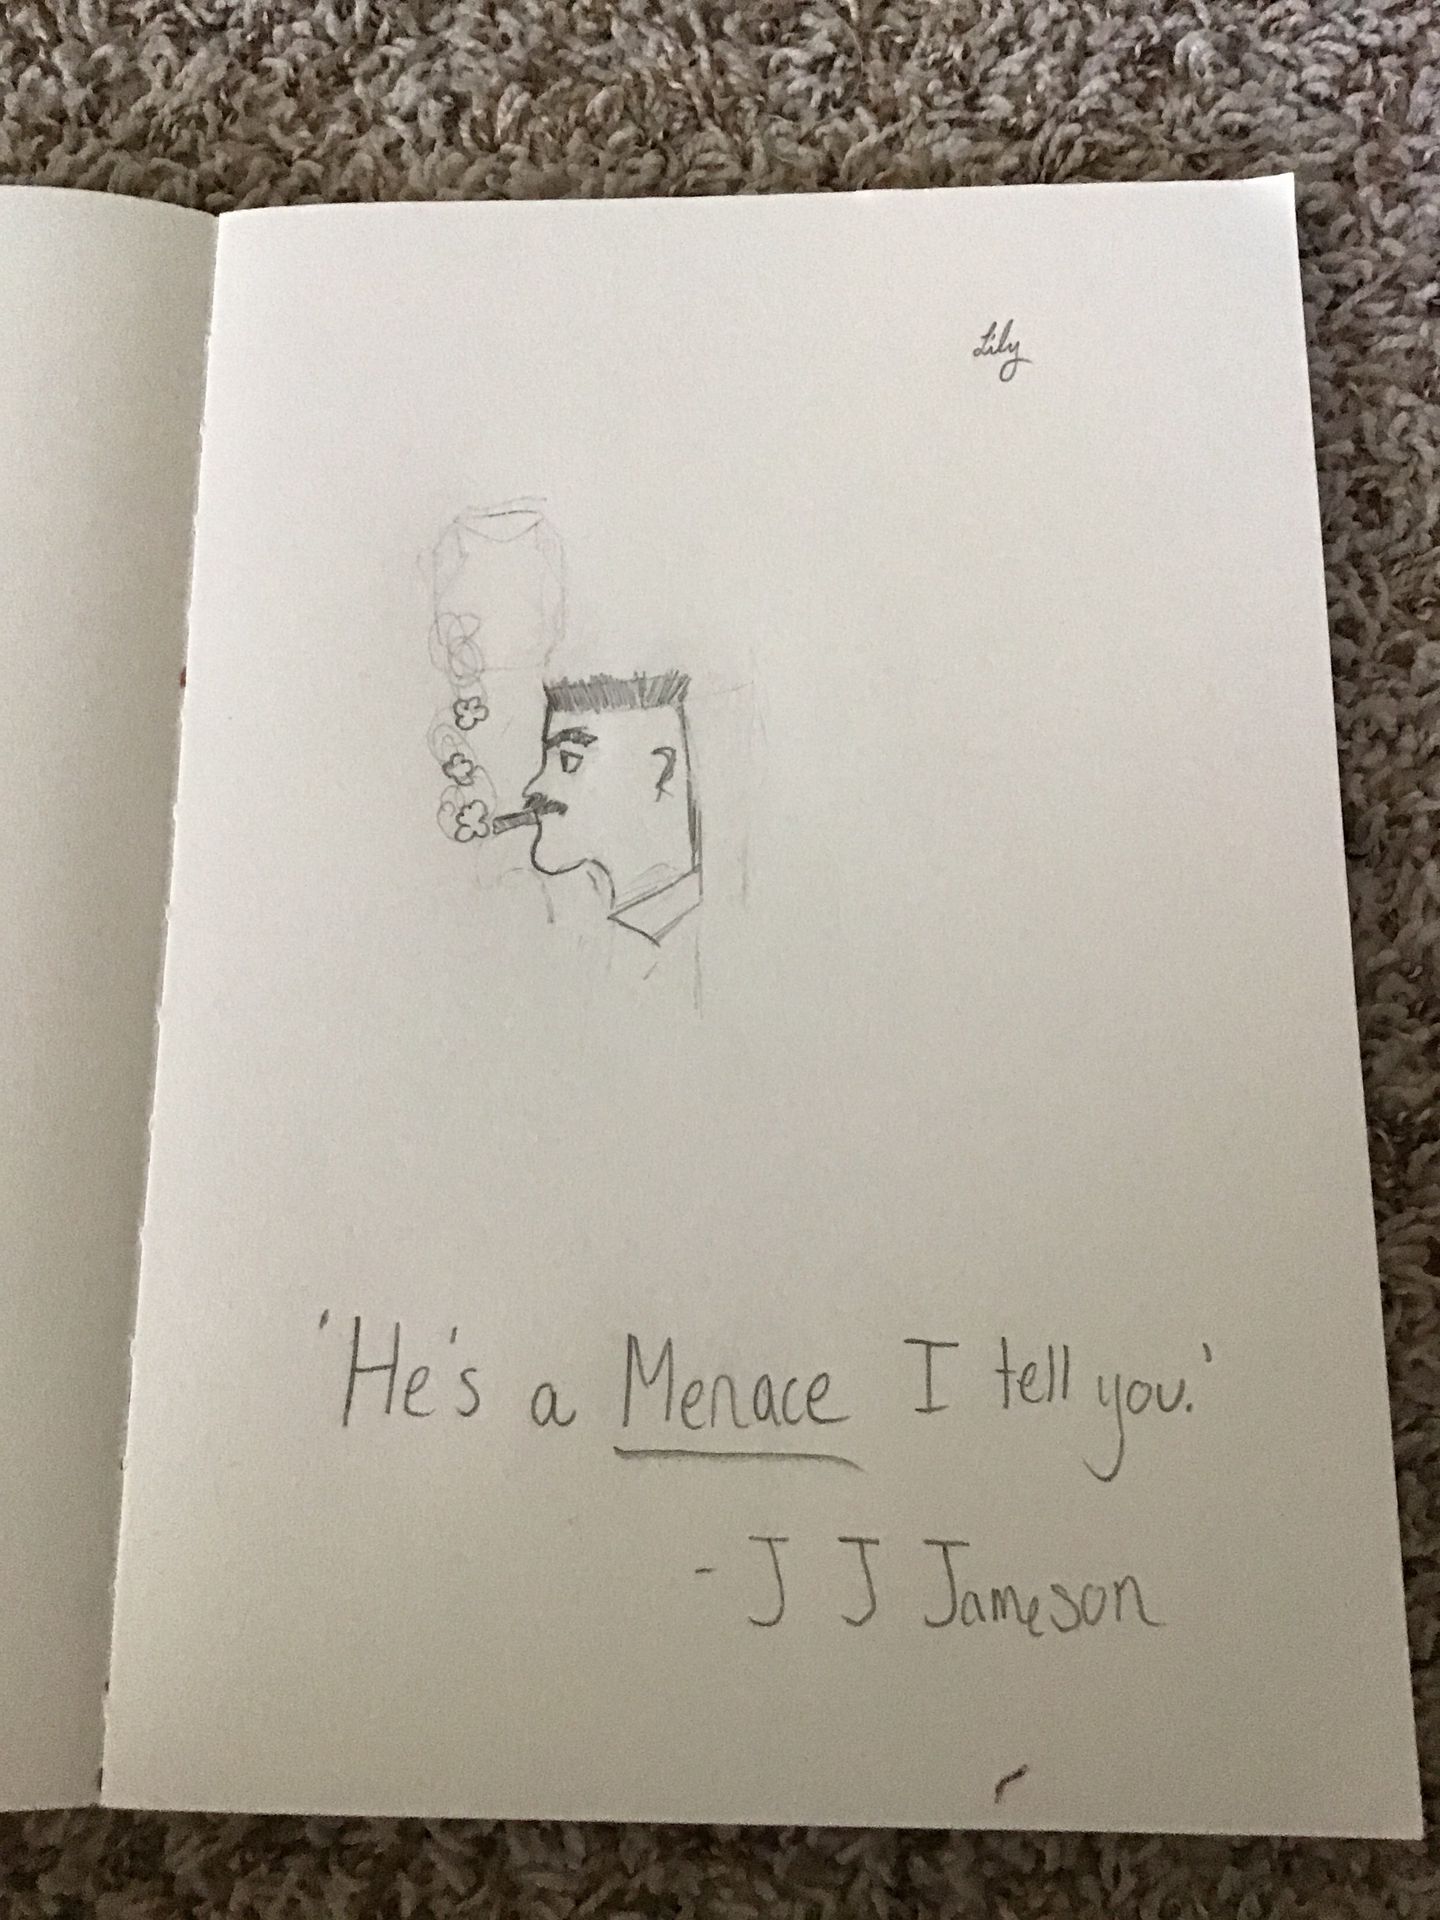 Lily
'He's a Menace I tell you.'
- J J Jameson